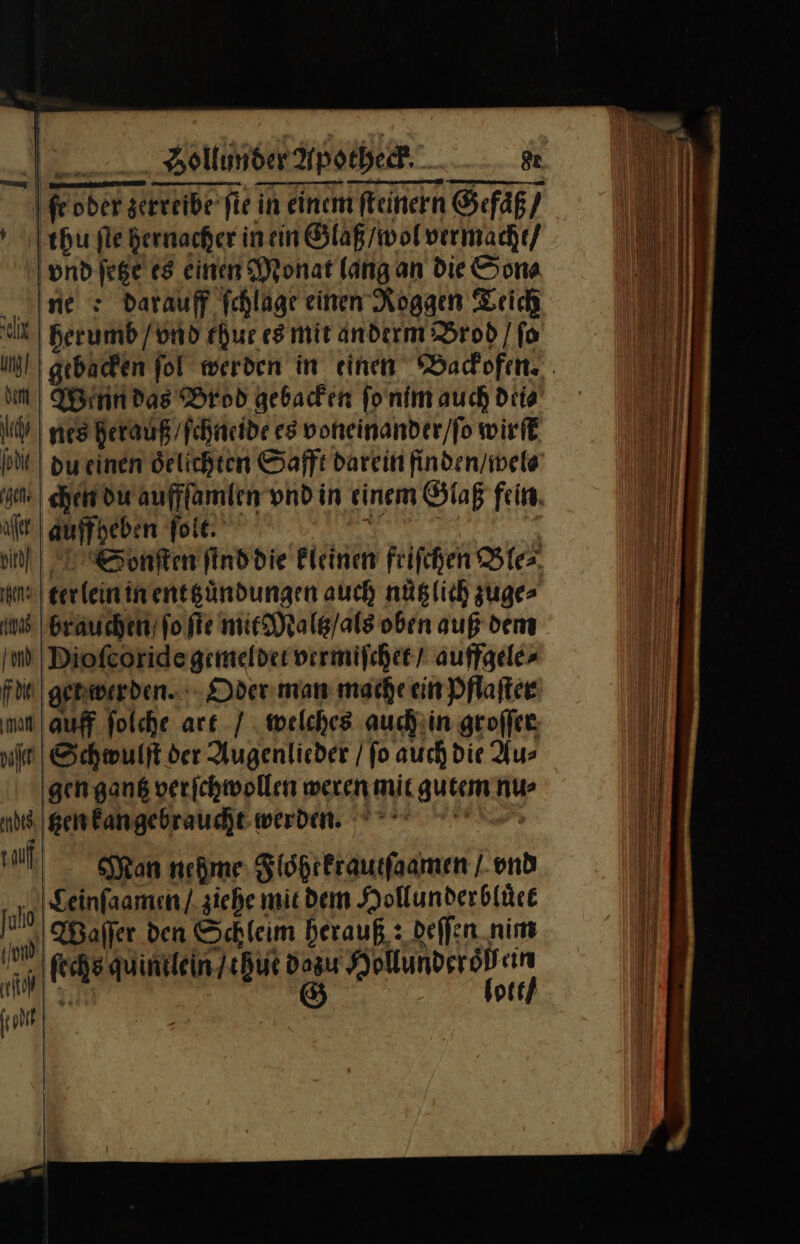 Hollunder Apotheck. 81
ſe oder zerreibe ſie in einem ſteinern Gefäß /
thu ſie hernacher in ein Glaß / wol vermacht /
vnd ſetze es einen Monat lang an die Son⸗
ne : darauff ſchlage einen Roggen Teich
herumb / vnd thue es mit anderm Brod / ſo
gebacken ſol werden in einen Backofen.
Wenn das Brod gebacken ſo nim auch dei⸗
nes herauß / ſchneide es voneinander / ſo wirſt
du einen oͤelichten Safft darein finden / wel⸗
chen du auffſamlen vnd in einem Glaß fein
auffheben ſolt.
Sonſten ſind die kleinen friſchen Ble⸗
terlein in entzuͤndungen auch nuͤtzlich zuge⸗
brauchen / ſo ſie mit Maltz / als oben auß dem
Dioſcoride gemeldet vermiſchet / auffgele⸗
get werden. Oder man mache ein Pflaſter
auff ſolche art / welches auch in groſſer
Schwulſt der Augenlieder / ſo auch die Au⸗
gen gantz verſchwollen weren mit gutem nu⸗
tzen kan gebraucht werden.
Man nehme Floͤhekrautſaamen / vnd
Leinſaamen / ziehe mit dem Hollunderbluͤet
Waſſer den Schleim herauß : deſſen nim
ſechs quintlein / thue dazu Hollunderoͤhl ein
G lott /